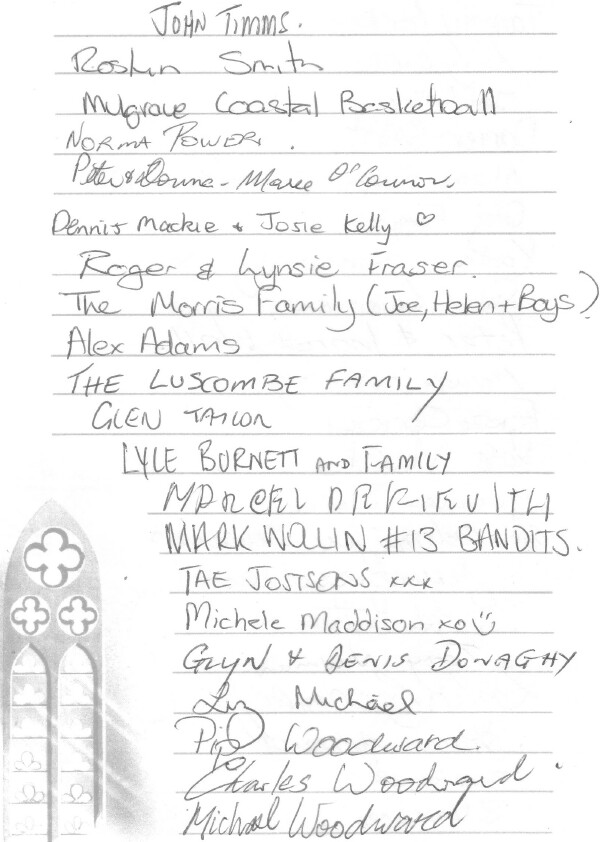 JOHN TIMMS.
Roslin Smith
Mulgrave Coastal Basketball
NORMA POWER.
Peter & Donna-Maree O'Connor.
Dennis Mackie & Josie Kelly ♡
Roger & Lynsie Fraser.
The Morris Family (Joe, Helen + Boys)
Alex Adams
THE LUSCOMBE FAMILY
GLEN TAILOR
LYLE BURNETT AND FAMILY
MARCEL
MARK WOLLIN #13 BANDITS.
TAE JOSTSONS xxx
Michele Maddison xo
GLYN & DENIS DONAGHY
Liz Michael
Pip Woodward.
Charles Woodward.
Michael Woodward